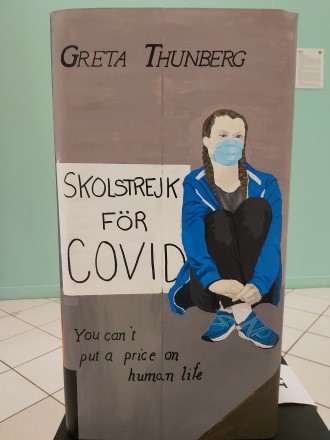 GRETA THUNBERG
SKOLSTREJK
FÖR
COVID
You can't
put a price on
human life